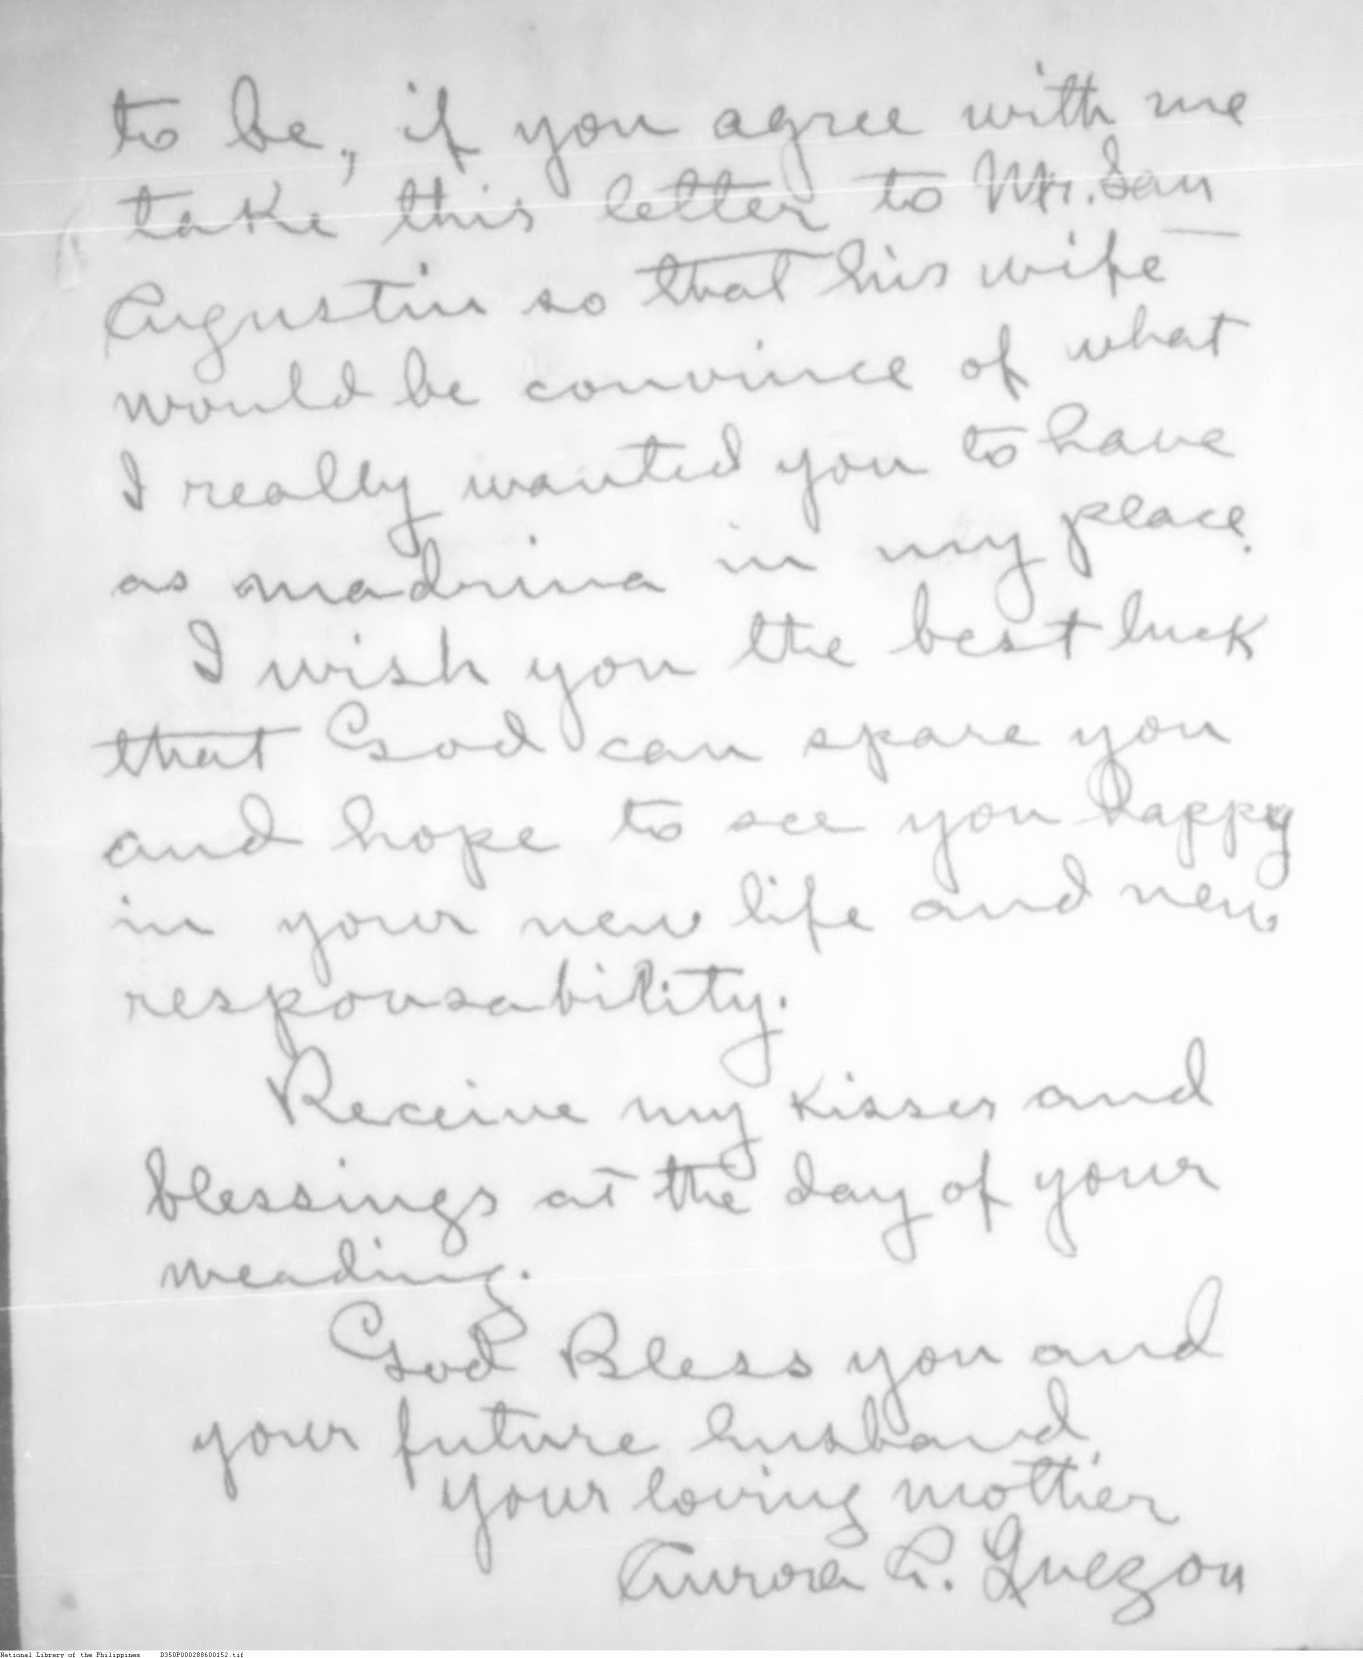 to be, if you agree with me
take this letter to Mr. San
Augustin so that his wife
would be convince of what
I really wanted you to have
as madrina in my place.
I wish you the best luck
that God can spare you
and hope to see you happy
in your new life and new
responsability.
Receive my kisses and
blessings at the day of your
weading.
God Bless you and
your future husband.
your loving mother
Aurora A. Quezon
National Library of the Philippines D350P000288600152.tif